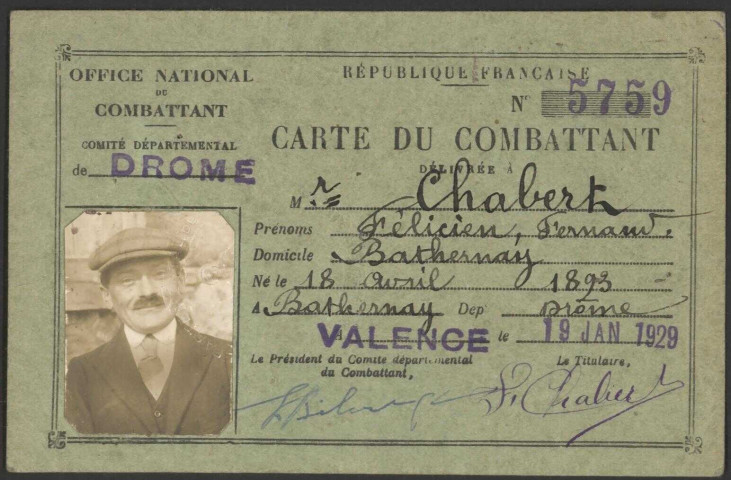 OFFICE NATIONAL
DU
COMBATTANT
COMITÉ DÉPARTEMENTAL
de DROME
RÉPUBLIQUE FRANCAISE
N° 5759
CARTE DU COMBATTANT
DÉLIVRÉE A
Mr Chabert
Prénoms Félicien, Fernand.
Domicile Bathernay
Né le 18 avril 1893
A Bathernay Dep' Drôme
VALENCE le 19 JAN 1929
Le Président du Comite départemental
du Combattant,
Le Titulaire,
F. Chabert